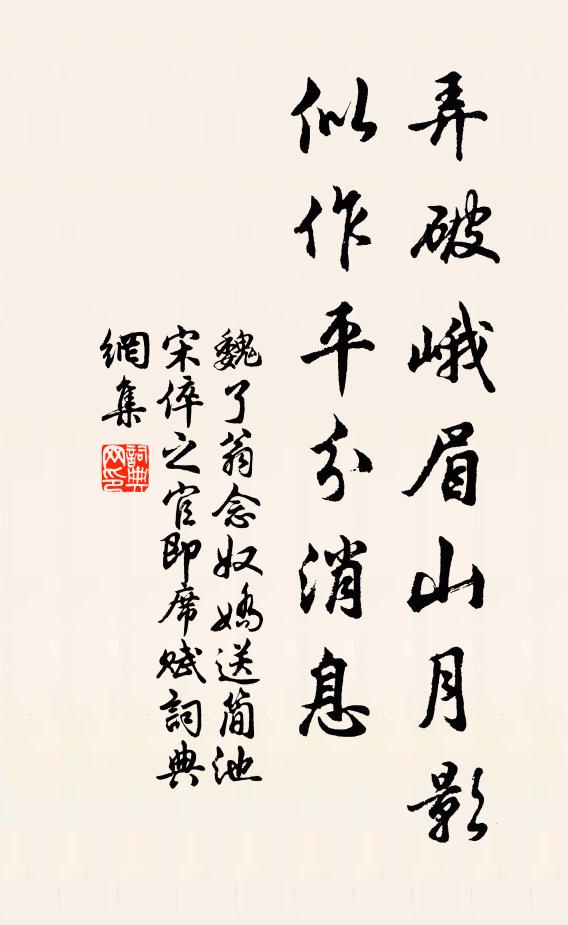 弄破峨眉山月影
似作平分消息
魏了翁念奴嬌送簡池
宋倅之官即席賦詞典
網集
詞典
网印